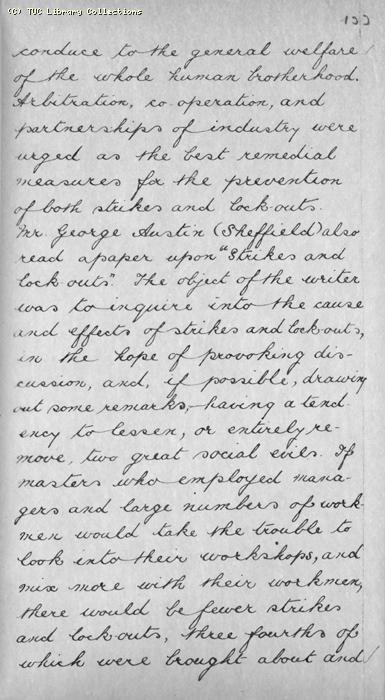 (C) TUC Library Collections
conduce to the general welfare
of the whole human brotherhood.
Arbitration, co-operation, and
partnerships of industry were
urged as the best remedial
measures for the prevention
of both strikes and lock-outs.
Mr. George Austin (Sheffield) also
read a paper upon "Strikes and
lock-outs". The object of the writer
was to inquire into the cause
and effects of strikes and lock-outs,
in the hope of provoking dis-
cussion, and, if possible, drawing
out some remarks, having a tend-
ency to lessen, or entirely re-
move, two great social evils. If
masters who employed mana-
gers and large numbers of work-
men would take the trouble to
look into their workshops, and
mix more with their workmen,
there would be fewer strikes
and lock-outs, three fourths of
which were brought about and